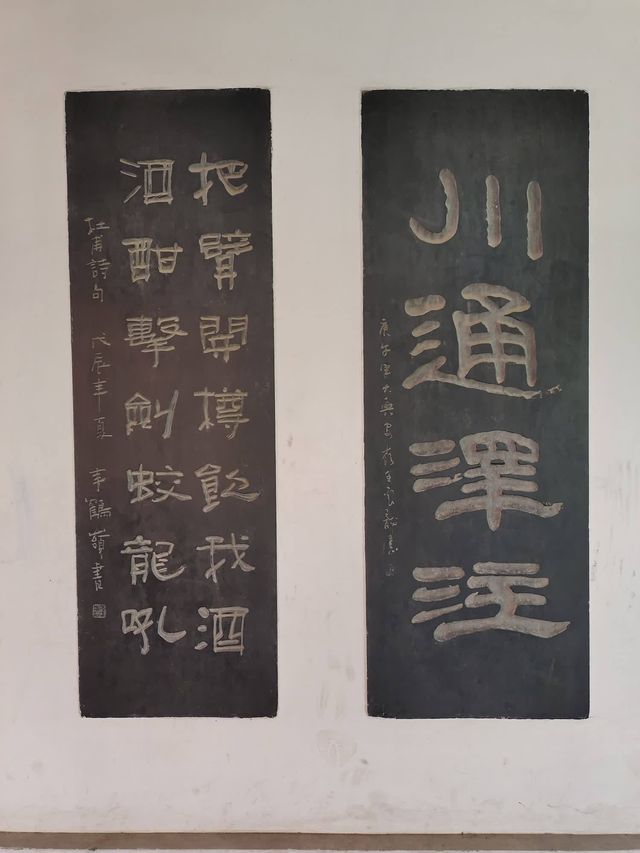 川通澤注
把臂開樽飲我酒
酒酣擊劍蛟龍吼
杜甫詩句 戊辰年夏 李鶴嶺書